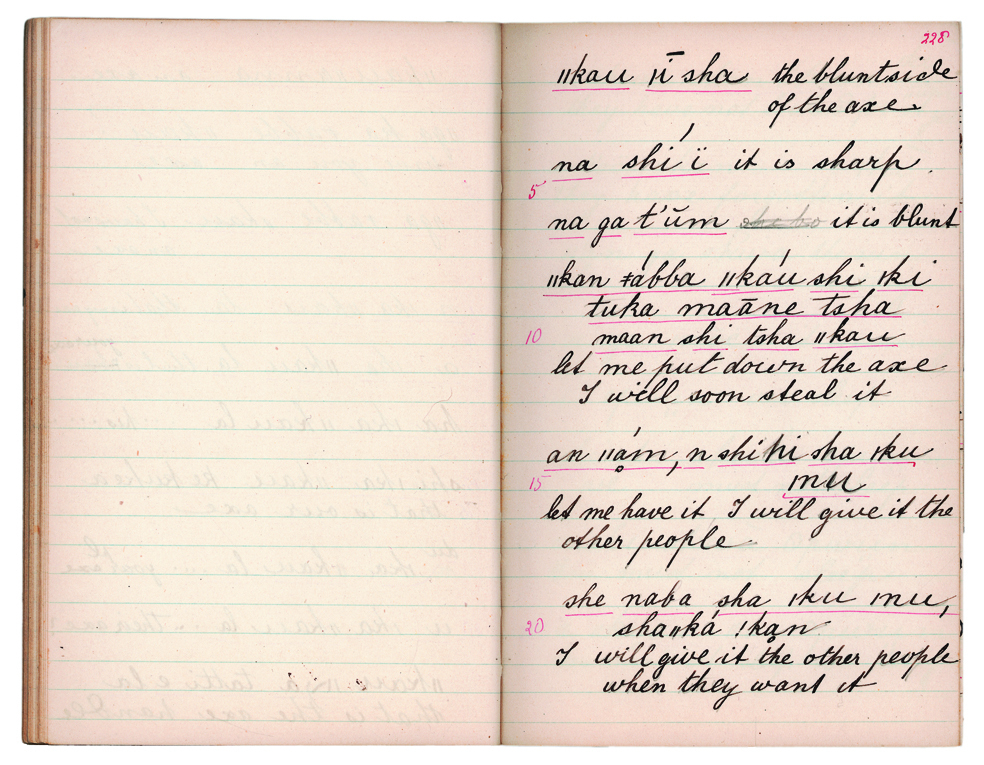 228
ǁkau ǀī sha the blunt side
of the axe.
na shí ï it is sharp.
5
na ga t'ŭm it is blunt
ǁkan ǂábba ǁkáu shi ǀki
tuka maāne t̄sha
10 maan shi tsha ǁkau
let me put down the axe
I will soon steal it
an ǁám̥, n shi hi sha ǀku
15 mu
let me have it, I will give it the
other people
she naba sha ǀku ǀnu,
20 sha ǁká !kan
I will give it the other people
when they want it